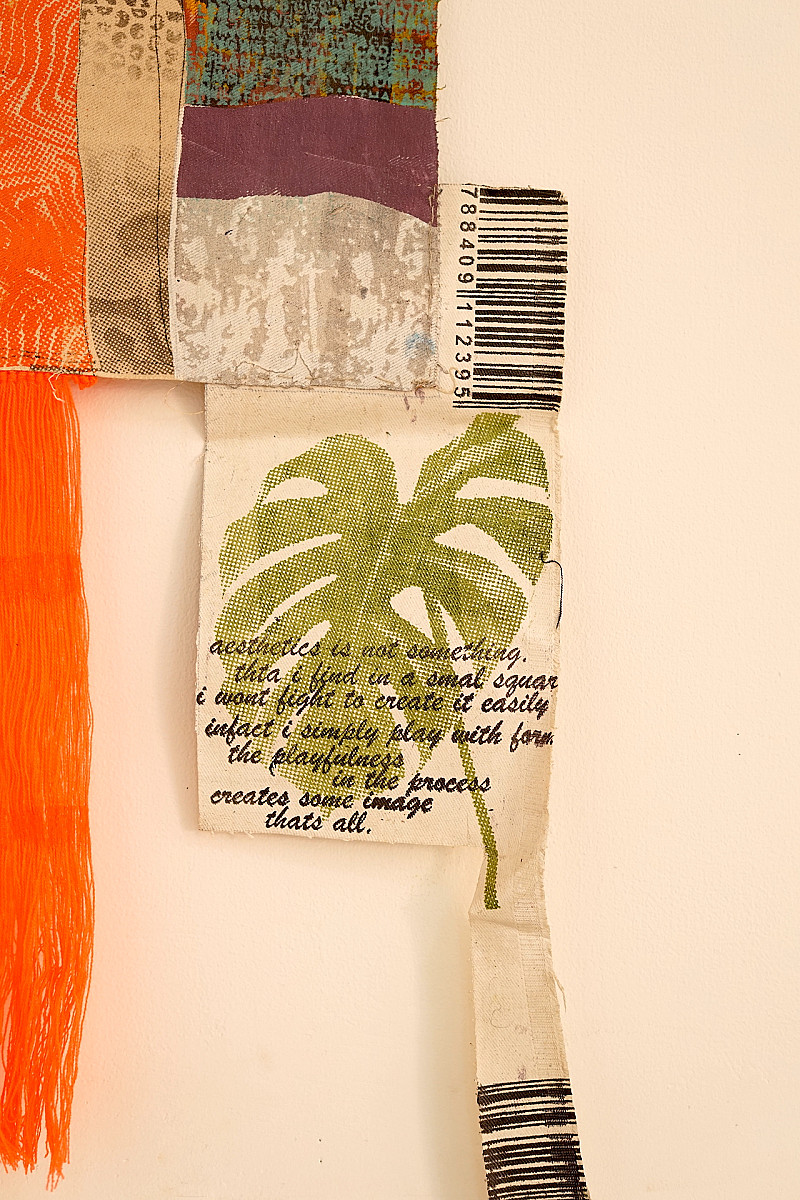 788409 112395
aesthetics is not something.
thta i find in a smal squar
i wont fight to create it easily
infact i simply play with form
the playfulness
in the process
creates some image
thats all.